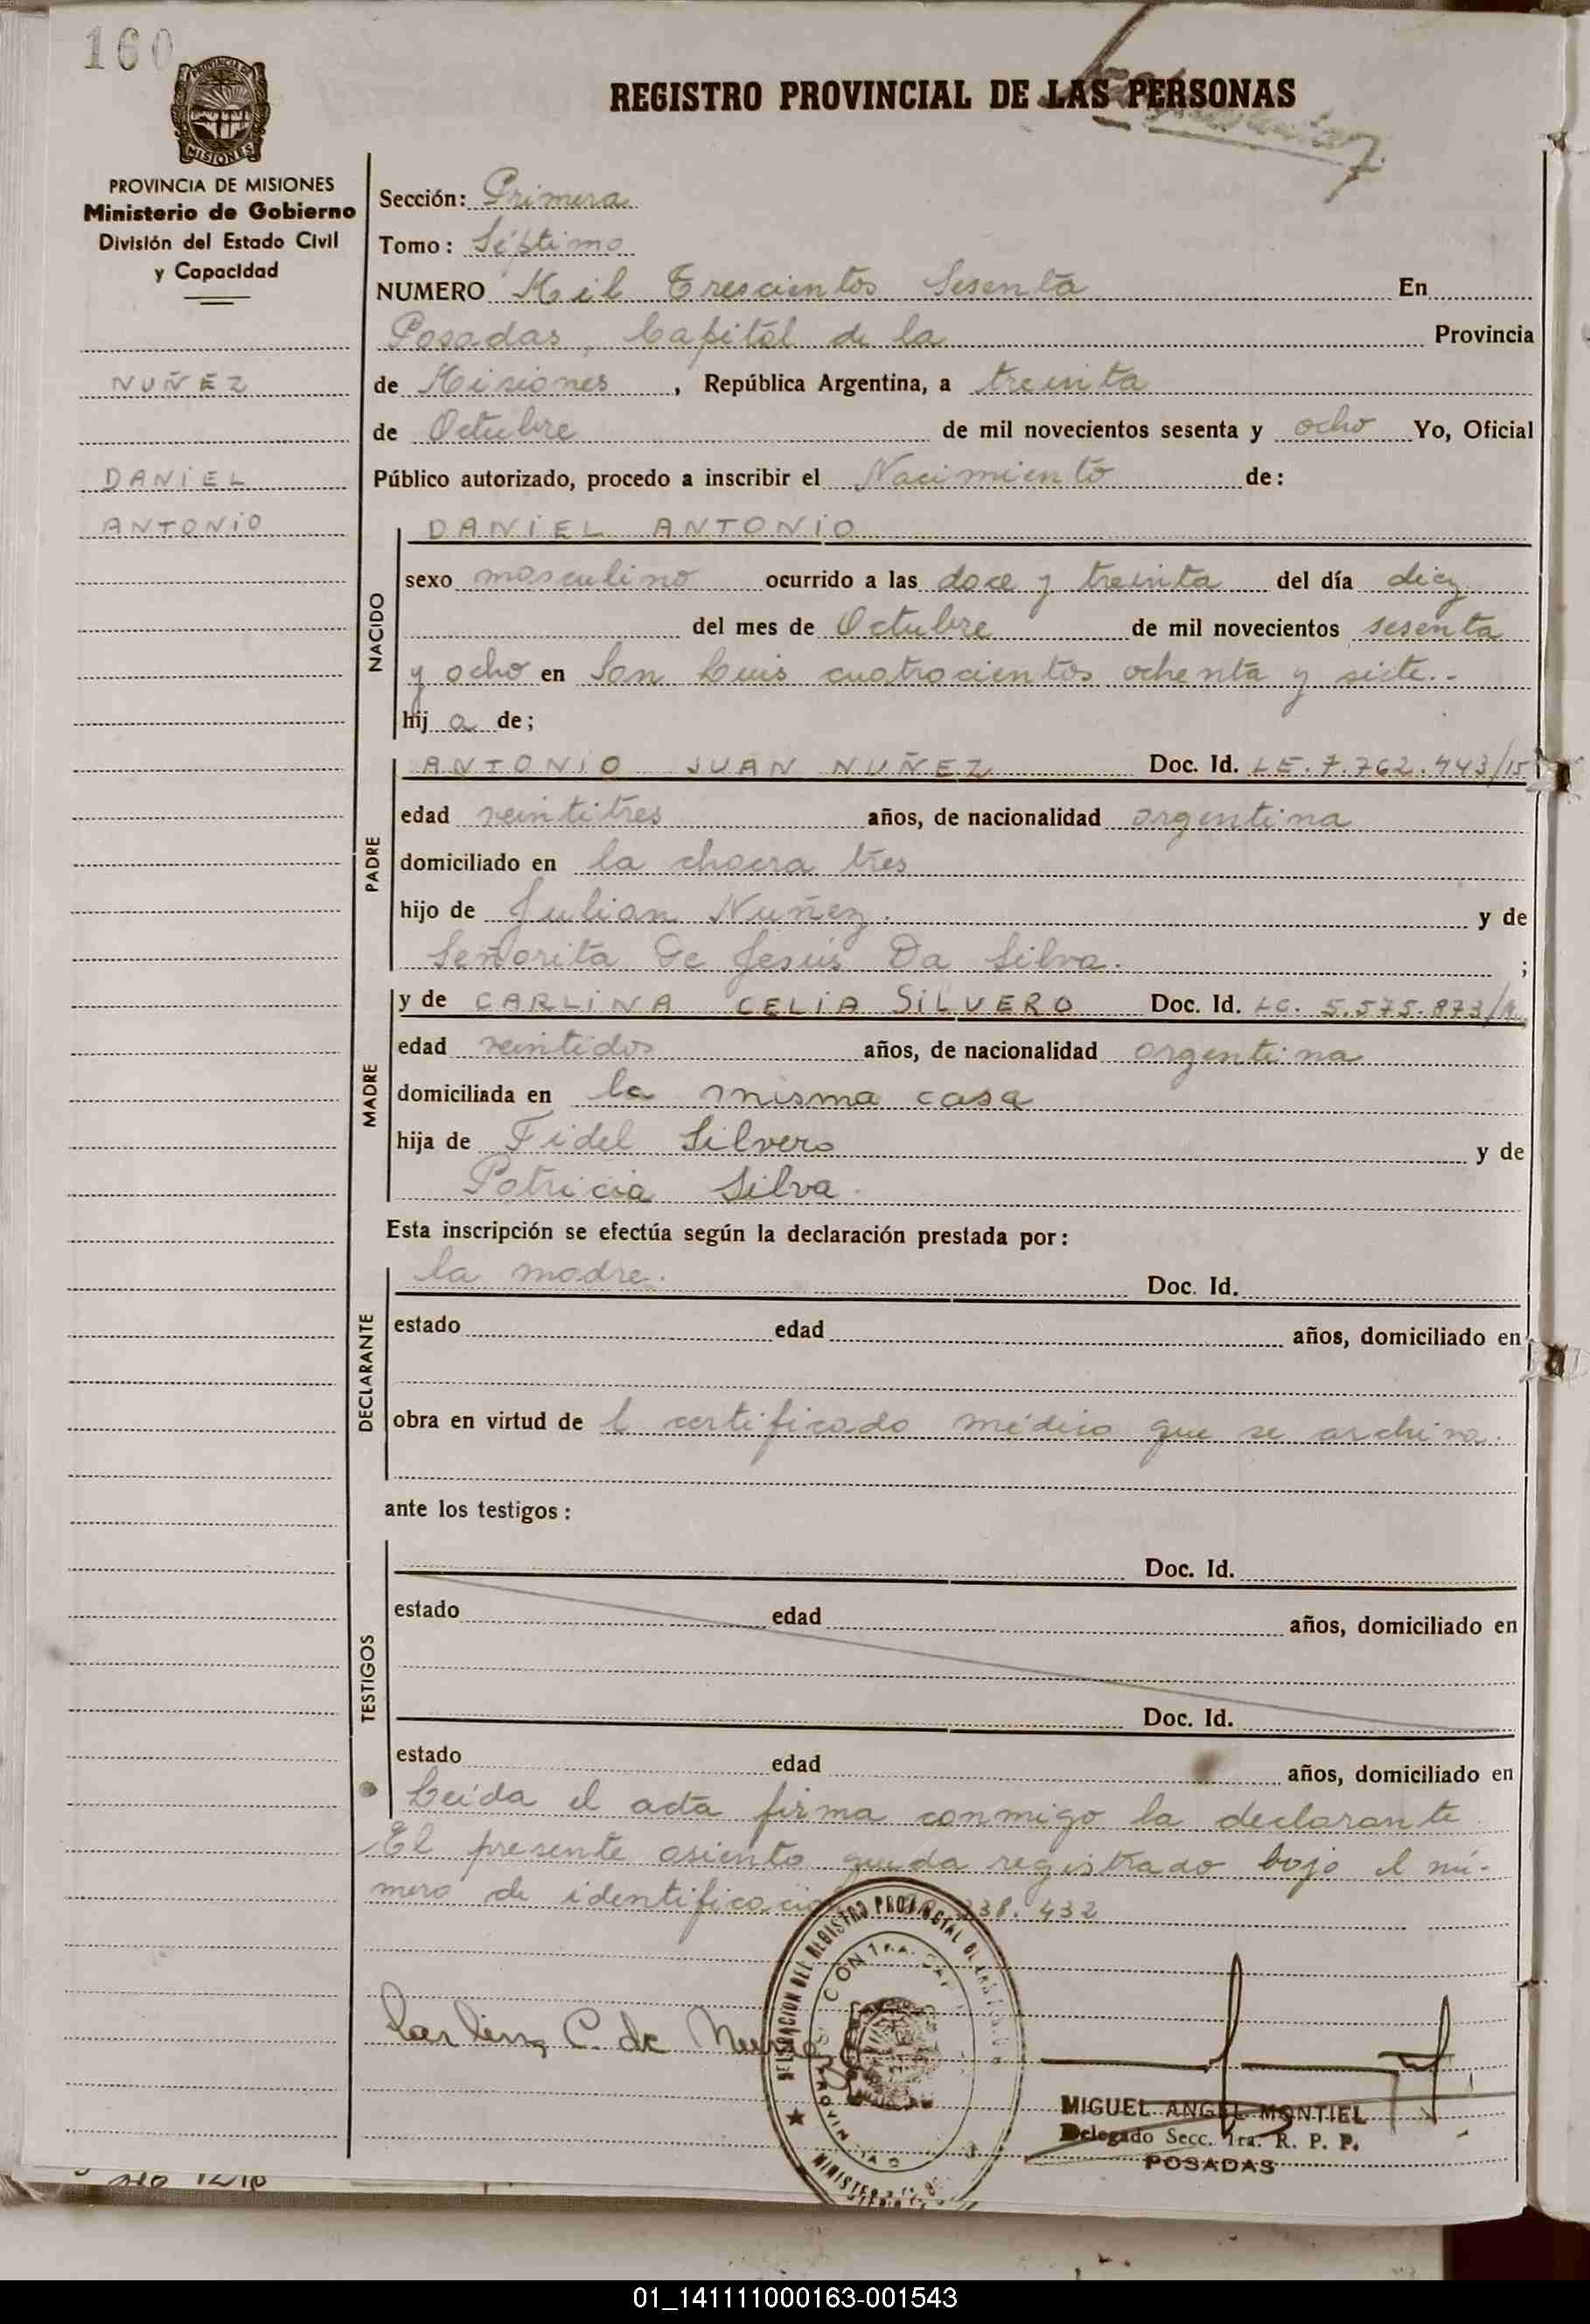 160
PROVINCIA DE MISIONES
REGISTRO PROVINCIAL DE LAS PERSONAS
PROVINCIA DE MISIONES
Ministerio de Gobierno
División del Estado Civil
y Capacidad
NUÑEZ
DANIEL
ANTONIO
Sección: Primera
Tomo: Séptimo
NUMERO Mil Trescientos Sesenta En
Posadas, Capital de la Provincia
de Misiones, República Argentina, a treinta
de Octubre de mil novecientos sesenta y ocho Yo, Oficial
Público autorizado, procedo a inscribir el Nacimiento de:
NACIDO
DANIEL ANTONIO
sexo masculino ocurrido a las doce y treinta del día diez
del mes de Octubre de mil novecientos sesenta
y ocho en San Luis cuatrocientos ochenta y siete.-
hij o de;
PADRE
ANTONIO JUAN NUÑEZ Doc. Id. LE. 7.762.443/15
edad veintitres años, de nacionalidad argentina
domiciliado en la chacra tres
hijo de Julian Nuñez. y de
Señorita De Jesús Da Silva. ;
MADRE
y de CARLINA CELIA SILVERO Doc. Id. LC. 5.575.873
edad veintidos años, de nacionalidad argentina
domiciliada en la misma casa
hija de Fidel Silvero y de
Patricia Silva.
Esta inscripción se efectúa según la declaración prestada por:
DECLARANTE
la madre. Doc. Id.
estado edad años, domiciliado en
obra en virtud de l certificado médico que se archiva.
ante los testigos:
TESTIGOS
Doc. Id.
estado edad años, domiciliado en
Doc. Id.
estado edad años, domiciliado en
Leída el acta firma conmigo la declarante.
El presente asiento queda registrado bajo el nú-
mero de identificación 338.432
Carlina C. de Nuñez
MIGUEL ANGEL MONTIEL
Delegado Secc. 1ra. R. P. P.
POSADAS
01_141111000163-001543